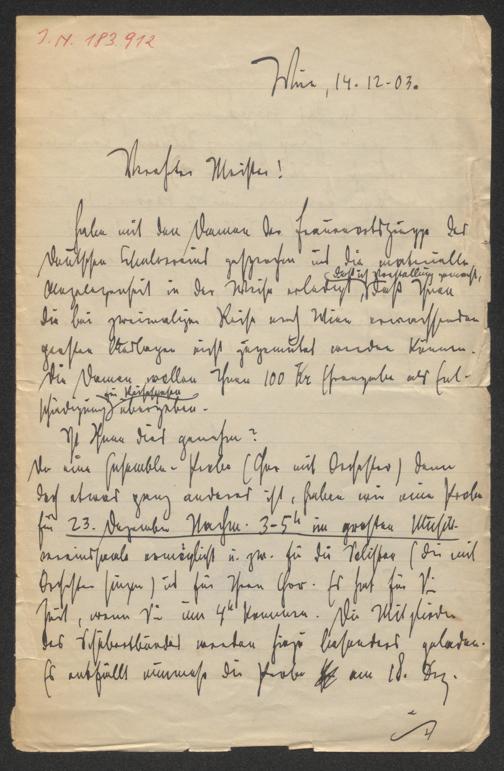 I.N. 183.912
Wien, 14.-12-03.
Verehrter Meister!
Habe mit den Damen der Frauenortsgruppe des
Deutschen Schulvereins gesprochen und die materielle
Angelegenheit in der Weise erledigt, daß Ihnen
daß ich Vorstellung gemacht,
die bei zweimaliger Reise nach Wien erwachsenden
großen Auslagen nicht zugemutet werden können.
Die Damen wollen Ihnen 100 Kr Ehrengabe als Ent-
schädigung übergeben.
zu Reisespesen
Ist Ihnen dies genehm?
Da eine Ensemble-Probe (Chor mit Orchester) denn
doch etwas ganz anderes ist, haben wir eine Probe
für 23. Dezember Nachm. 3-5h im großen Musik-
vereinssaale ermöglicht u. zw. für die Solisten (die mit
Orchester singen) und für Ihren Chor. Es hat für Sie
Zeit, wenn Sie um 4h kommen. Die Mitglieder
des Schubertbundes werden hiezu besonders geladen.
Es entfällt nunmehr die Probe am 18. Dez.